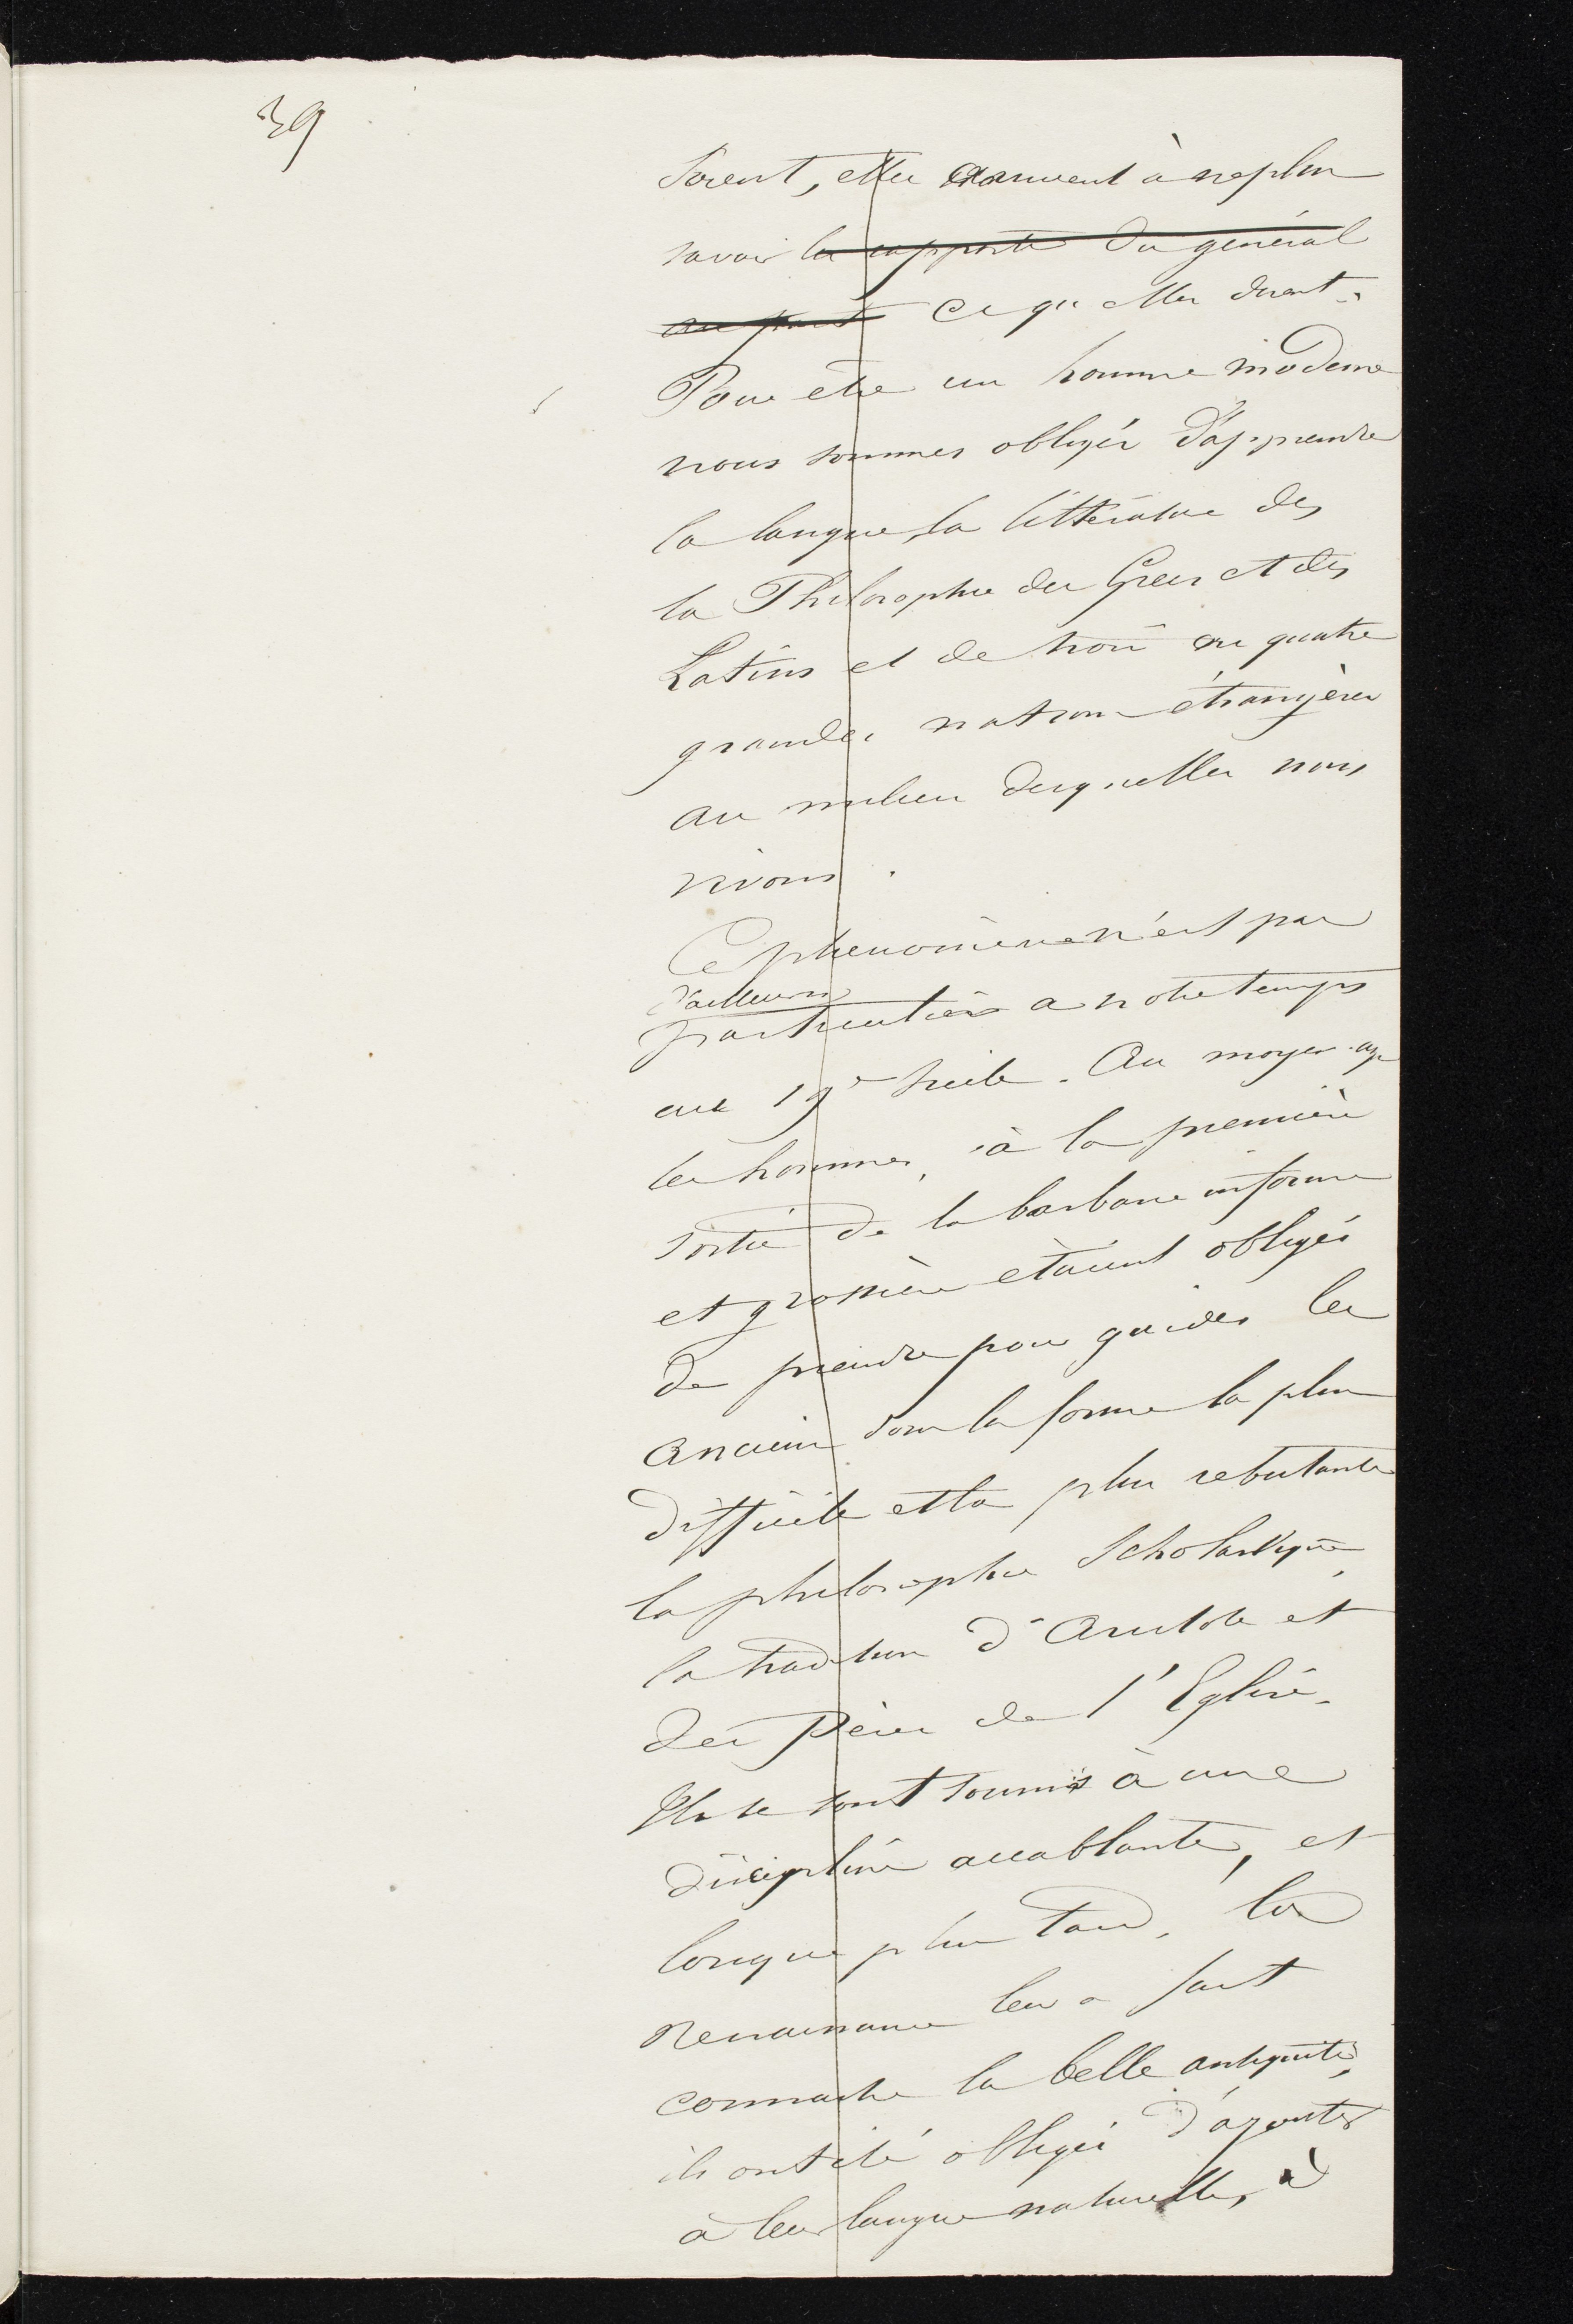 39
disent, elles arrivent à ne plus
savoir les rapports du général
au part ce qu'elles disent.
Pour être un homme moderne
nous sommes obligés d'apprendre
la langue, la littérature des
la Philosophie des Grecs et des
Latins et de trois ou quatre
grandes nations étrangères
au milieu desquelles nous
vivons.
Ce phénomène n'est pas
d'ailleurs
particulier a notre temps
au 19e siècle. Au moyen-age
les hommes, à la première
sortie de la barbarie informe
et grossière étaient obligés
de prendre pour guides les
anciens sous la forme la plus
difficile et la plus rebutante
la philosophie scholastique,
la tradition d'Aristote et
des Pères de l'Eglise.
Ils se sont soumis à une
discipline accablante, et
lorsque plus tard, la
Renaissance leur a fait
connaitre la belle antiquité,
ils ont été obligés d'ajouter
à leur langue naturelle, à